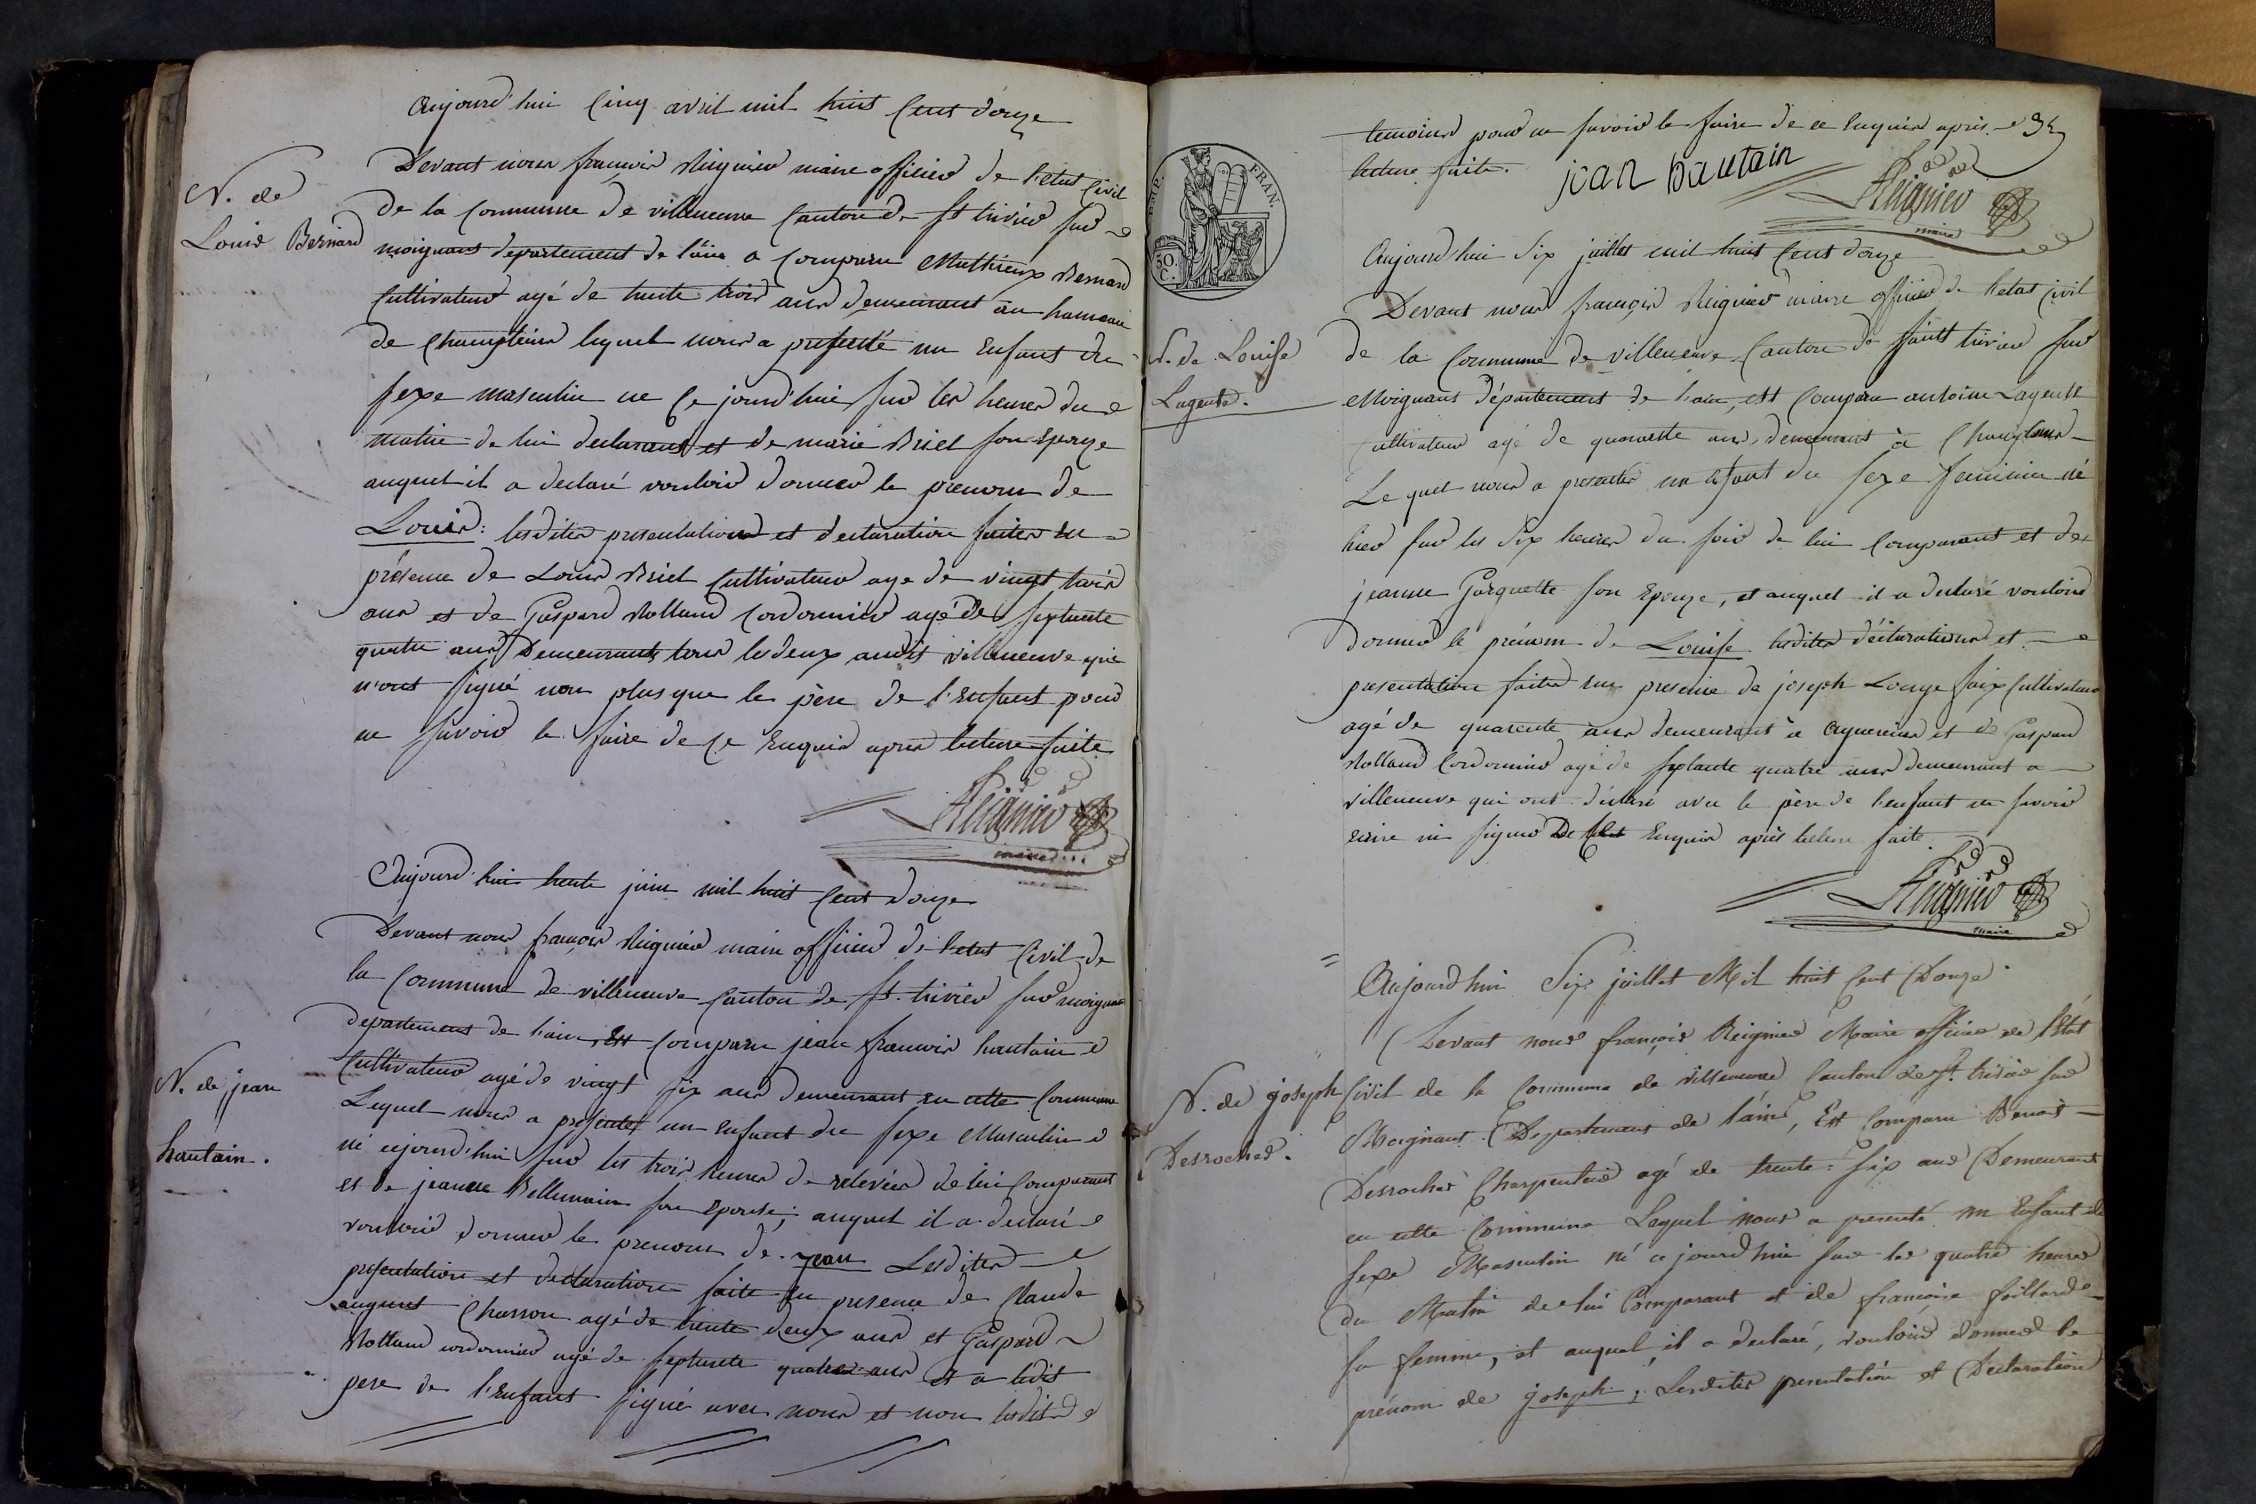 Aujourd'hui Cinq avril mil huit Cent douze
N. de
Louis Bernard
Devant nous françois Reignier maire officier de l'etat Civil
de la Commune de villeneuve Canton de St trivier sur
moignans departement de l'ain a Comparu Mathieux Bernard
Cultivateur agé de trente trois ans demeurant au hameau
de lequel nous a presenté un Enfant du
sexe masculin né Ce jourd'hui sur les heures du
matin de lui declarant et de marie Briel son Epouze
auquel il a declaré vouloir donner le prenom de
Louis: lesdites presentation et declaration faites en
présence de Louis Briel Cultivateur age de vingt trois
ans et de Gaspard Rolland Cordonnier agé de septante
quatre ans Demeurants tous les deux audit villeneuve qui
n'ont signé non plus que le père de l'Enfant pour
ne savoir le faire de Ce Enquis apres lecture faite
Reignier
maire
Aujourd'hui trente juin mil huit Cent douze
Devant nous françois Reignier maire officier de l'etat Civil de
la Commune de villeneuve Canton de St. trivier sur moignans
departement de l'ain, Est Comparu jean francois hautain
Cultivateur agé de vingt six ans demeurant en cette Commune
N. de jean
hautain.
Lequel nous a présenté un enfant du sexe Masculin
né cejourd'hui sur les trois heures de relevée de lui Comparant
et de jeanne son epouse; auquel il a declaré
vouloir donner le prenom de jean Lesdites
presentation et declaration faite en presence de Claude
august Chasson agé de trente deux ans et Gaspard
Rolland cordonnier agé de septante quatre ans et a ledit
pere de l'Enfant signé avec nous et non lesdits
temoins pour ne savoir le faire de ce enquis après
lecture faite.
jean hautain
Reignier
maire
EMP. FRAN.
50. C.
Aujourd'hui Six juillet mil huit Cent douze
N. de Louise
Lagente.
Devant nous françois Reignier maire officier de l'etat Civil
de la Commune de villeneuve Canton de saint trivier sur
Moignans département de l'ain, est Comparu antoine Lagente
Cultivateur agé de quarante ans, demeurant à
Le quel nous a presenter un enfant du sexe feminin né
hier sur les Six heures du soir de lui Comparant et de
jeanne son Epouze, et auquel il a declaré vouloir
donner le prénom de Louise lesdites déclarations et
presentation faites en presence de joseph Cultivateur
agé de quarente ans demeurant à et de Gaspard
Rolland Cordonnier agé de septante quatre ans demeurant a
villeneuve qui ont déclaré avec le père de l'enfant ne savoir
ecrire ni signer De Enquis après lecture faite.
Reignier
maire
Aujourd'hui Six juillet Mil huit Cent Douze
Devant nous françois Reignier Maire officier de l'Etat
N. de joseph
Desroches.
Civil de la Commune de Villeneuve Canton de St. trivier sur
Moignans Departement de l'ain, Est Comparu Benoit
Desroches Charpentier agé de trente-six ans Demeurant
en cette Commune Lequel nous a presenté un Enfant de
sexe Masculin né ce jourd'hui sur les quatre heures
du Matin de lui Comparant et de francoise
sa femme, et auquel il a declaré, vouloir donner le
prénom de joseph; Lesdites presentation et Declaration